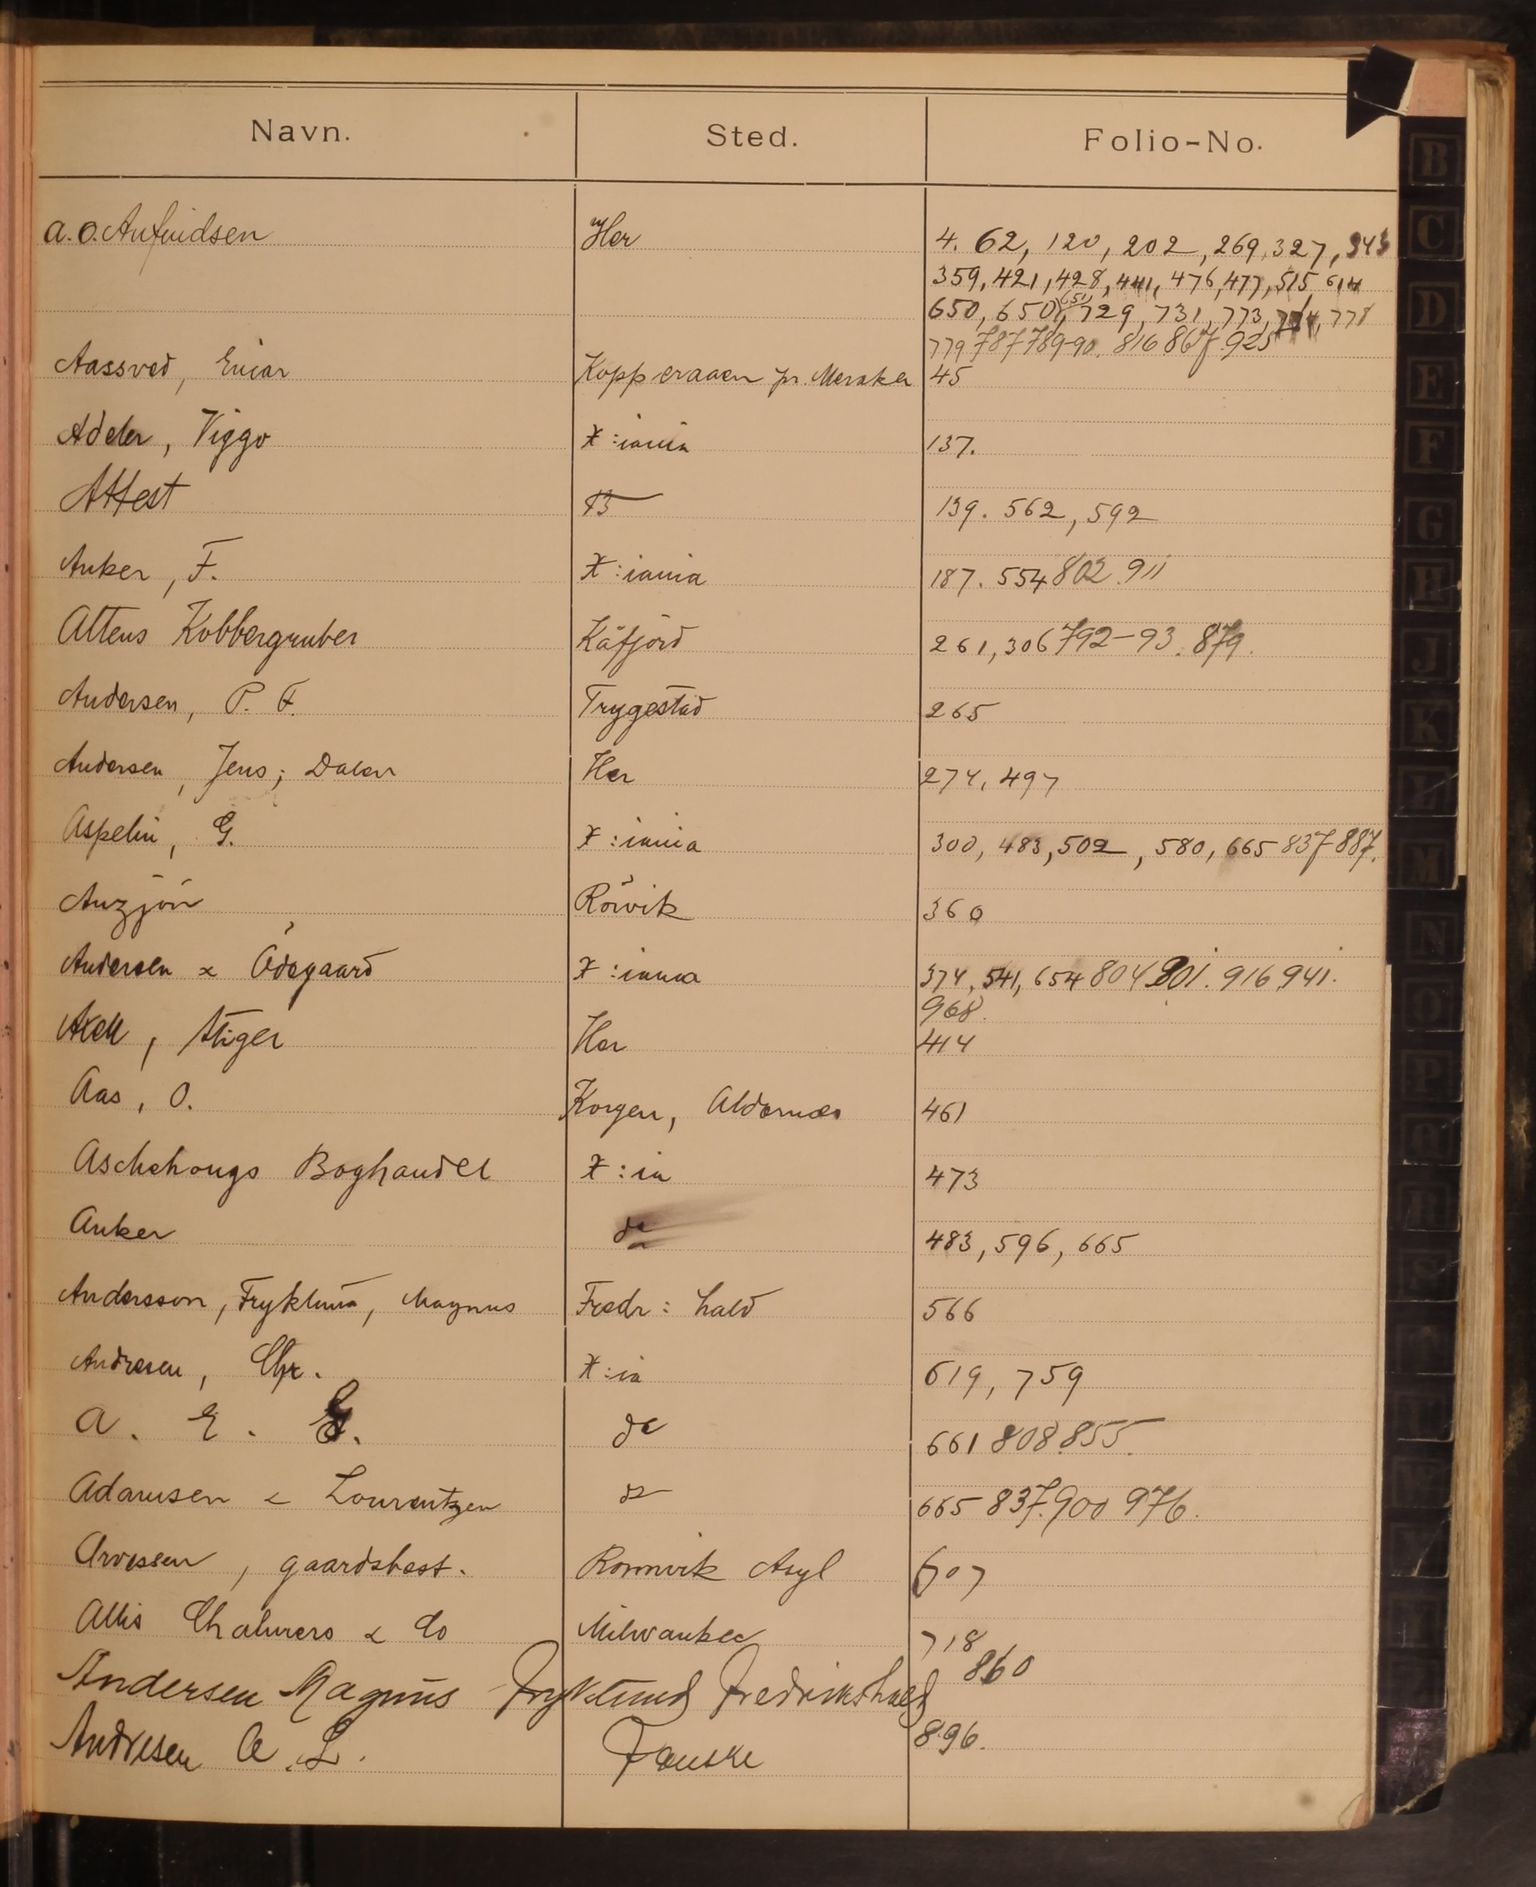 Navn. Sted. Folio-No.
a. o. Anfindsen Her 4. 62, 120, 202, 269, 327, 343
359, 421, 428, 441, 476, 477, 515 614
650, 650, 651, 729, 731, 773, 774, 778
779 787 789-90. 816 867. 925
Aassved, Einar Kopperaaen pr. Meraker 45
Adeler, Viggo X:iania 137.
Attest 139. 562, 592
Anker, F. X:iania 187. 554 802. 911
Altens Kobbergruber Kåfjord 261, 306 792-93. 879.
Andersen, P. F. Trygestad 265
Andersen, Jens; Dalen Her 274, 497
Aspelin, G. X:iania 300, 483, 502, 580, 665 837 887.
Anzjön Rörvik 360
Andersen & Ödegaard X:iania 374, 541, 654 804 801. 916 941.
968.
Axell, Stiger Her 414
Aas, O. Korgen, Aldernæs 461
Aschehougs Boghandel X:ia 473
Anker do 483, 596, 665
Andersson, Fryklund, Magnus Fredr: hald 566
Andresen, Chr. X:ia 619, 759
A. E. G. do 661 808. 855.
Adamsen & Lourentzen do 665 837. 900 976.
Arvessen, gaardsbest. Ronnvik Asyl 607
Allis Chalmers & Co Milwaukee 718
Andersen Magnus Fryklund Fredrikshald 860
Andresen A. L. Fauske 896.